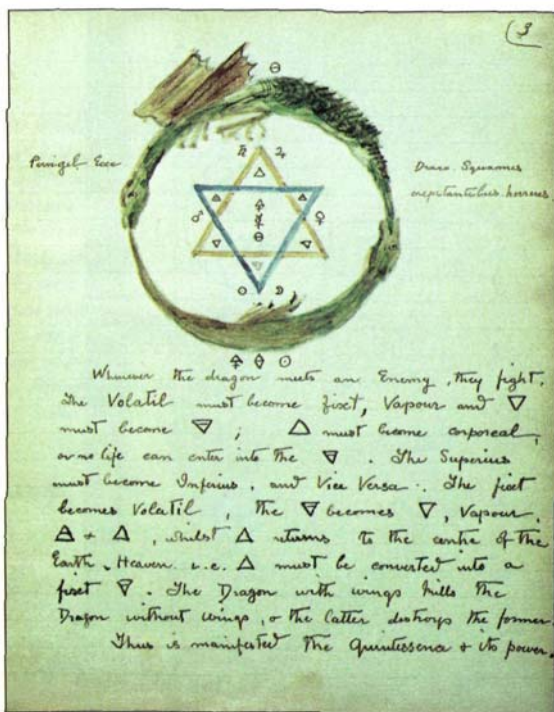 (3
Draco. Squamis
crepitantibus. horrens
Whenever the dragon meets an Enemy, they fight.
The Volatil must become fixt, Vapour and 🜄
must become 🜃 ; 🜂 must become corporeal,
or no life can enter into the 🜃 . The Superius
must become Inferius, and Vice Versa. The fixt
becomes Volatil, the 🜃 becomes 🜄, Vapour,
🜁 + 🜂, whilst 🜂 returns to the centre of the
Earth. Heaven. i.e. 🜂 must be converted into a
fixt 🜃 . The Dragon with wings kills the
Dragon without wings, & the latter destroys the former.
Thus is manifested the Quintessence & its power.